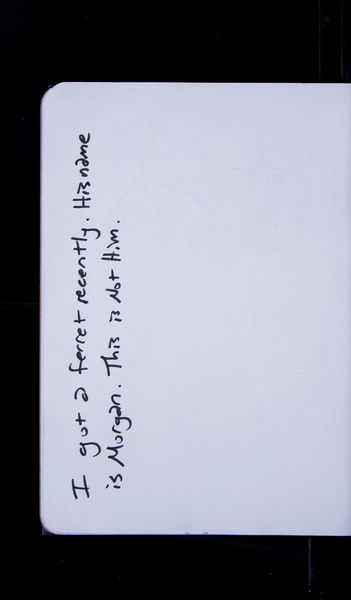 I got a ferret recently. His name
is Morgan. This is Not Him.